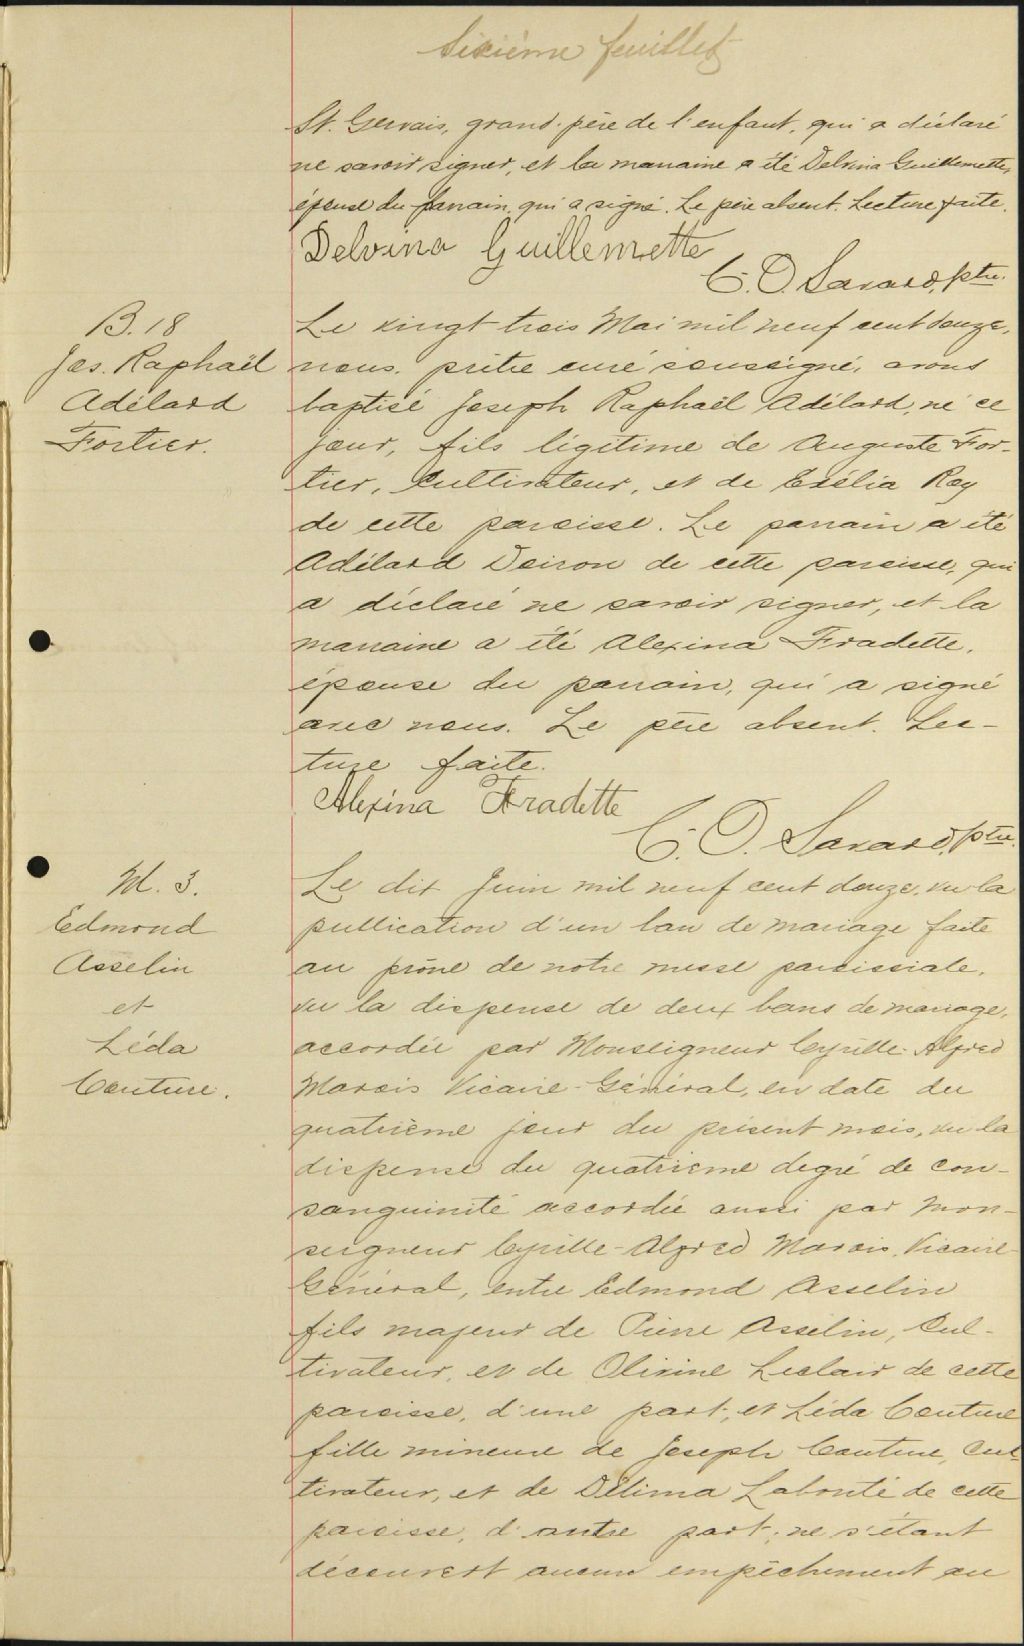 Sixième feuillet
St. Gervais, grand-père de l'enfant, qui a déclaré
ne savoir signer, et la marraine a été Delvina Guillemette,
épouse du parrain, qui a signé. Le père absent. Lecture faite.
Delvina Guillemette
C. O. Savard, ptre.
B. 18
Jos. Raphaël
Adélard
Fortier.
Le vingt-trois Mai mil neuf cent douze,
nous, prêtre curé soussigné, avons
baptisé Joseph Raphaël Adélard, né ce
jour, fils légitime de Auguste For-
tier, Cultivateur, et de Exélia Roy
de cette paroisse. Le parrain a été
Adélard Doiron de cette paroisse, qui
a déclaré ne savoir signer, et la
marraine a été Alexina Fradette,
épouse du parrain, qui a signé
avec nous. Le père absent. Lec-
ture faite.
Alexina Fradette
C. O. Savard, ptre.
M. 3.
Edmond
Asselin
et
Léda
Couture.
Le dix Juin mil neuf cent douze, vu la
publication d'un ban de mariage faite
au prône de notre messe paroissiale,
vu la dispense de deux bans de mariage,
accordée par Monseigneur Cyrille-Alfred
Marois Vicaire-Général, en date du
quatrième jour du présent mois, vu la
dispense du quatrième degré de con-
sanguinité accordée aussi par Mon-
seigneur Cyrille-Alfred Marois, Vicaire-
Général, entre Edmond Asselin
fils majeur de Pierre Asselin, Cul-
tivateur, et de Olivine Leclair de cette
paroisse, d'une part, et Léda Couture
fille mineure de Joseph Couture, Cul-
tivateur, et de Délima Labonté de cette
paroisse, d'autre part; ne s'étant
découvert aucun empêchement au